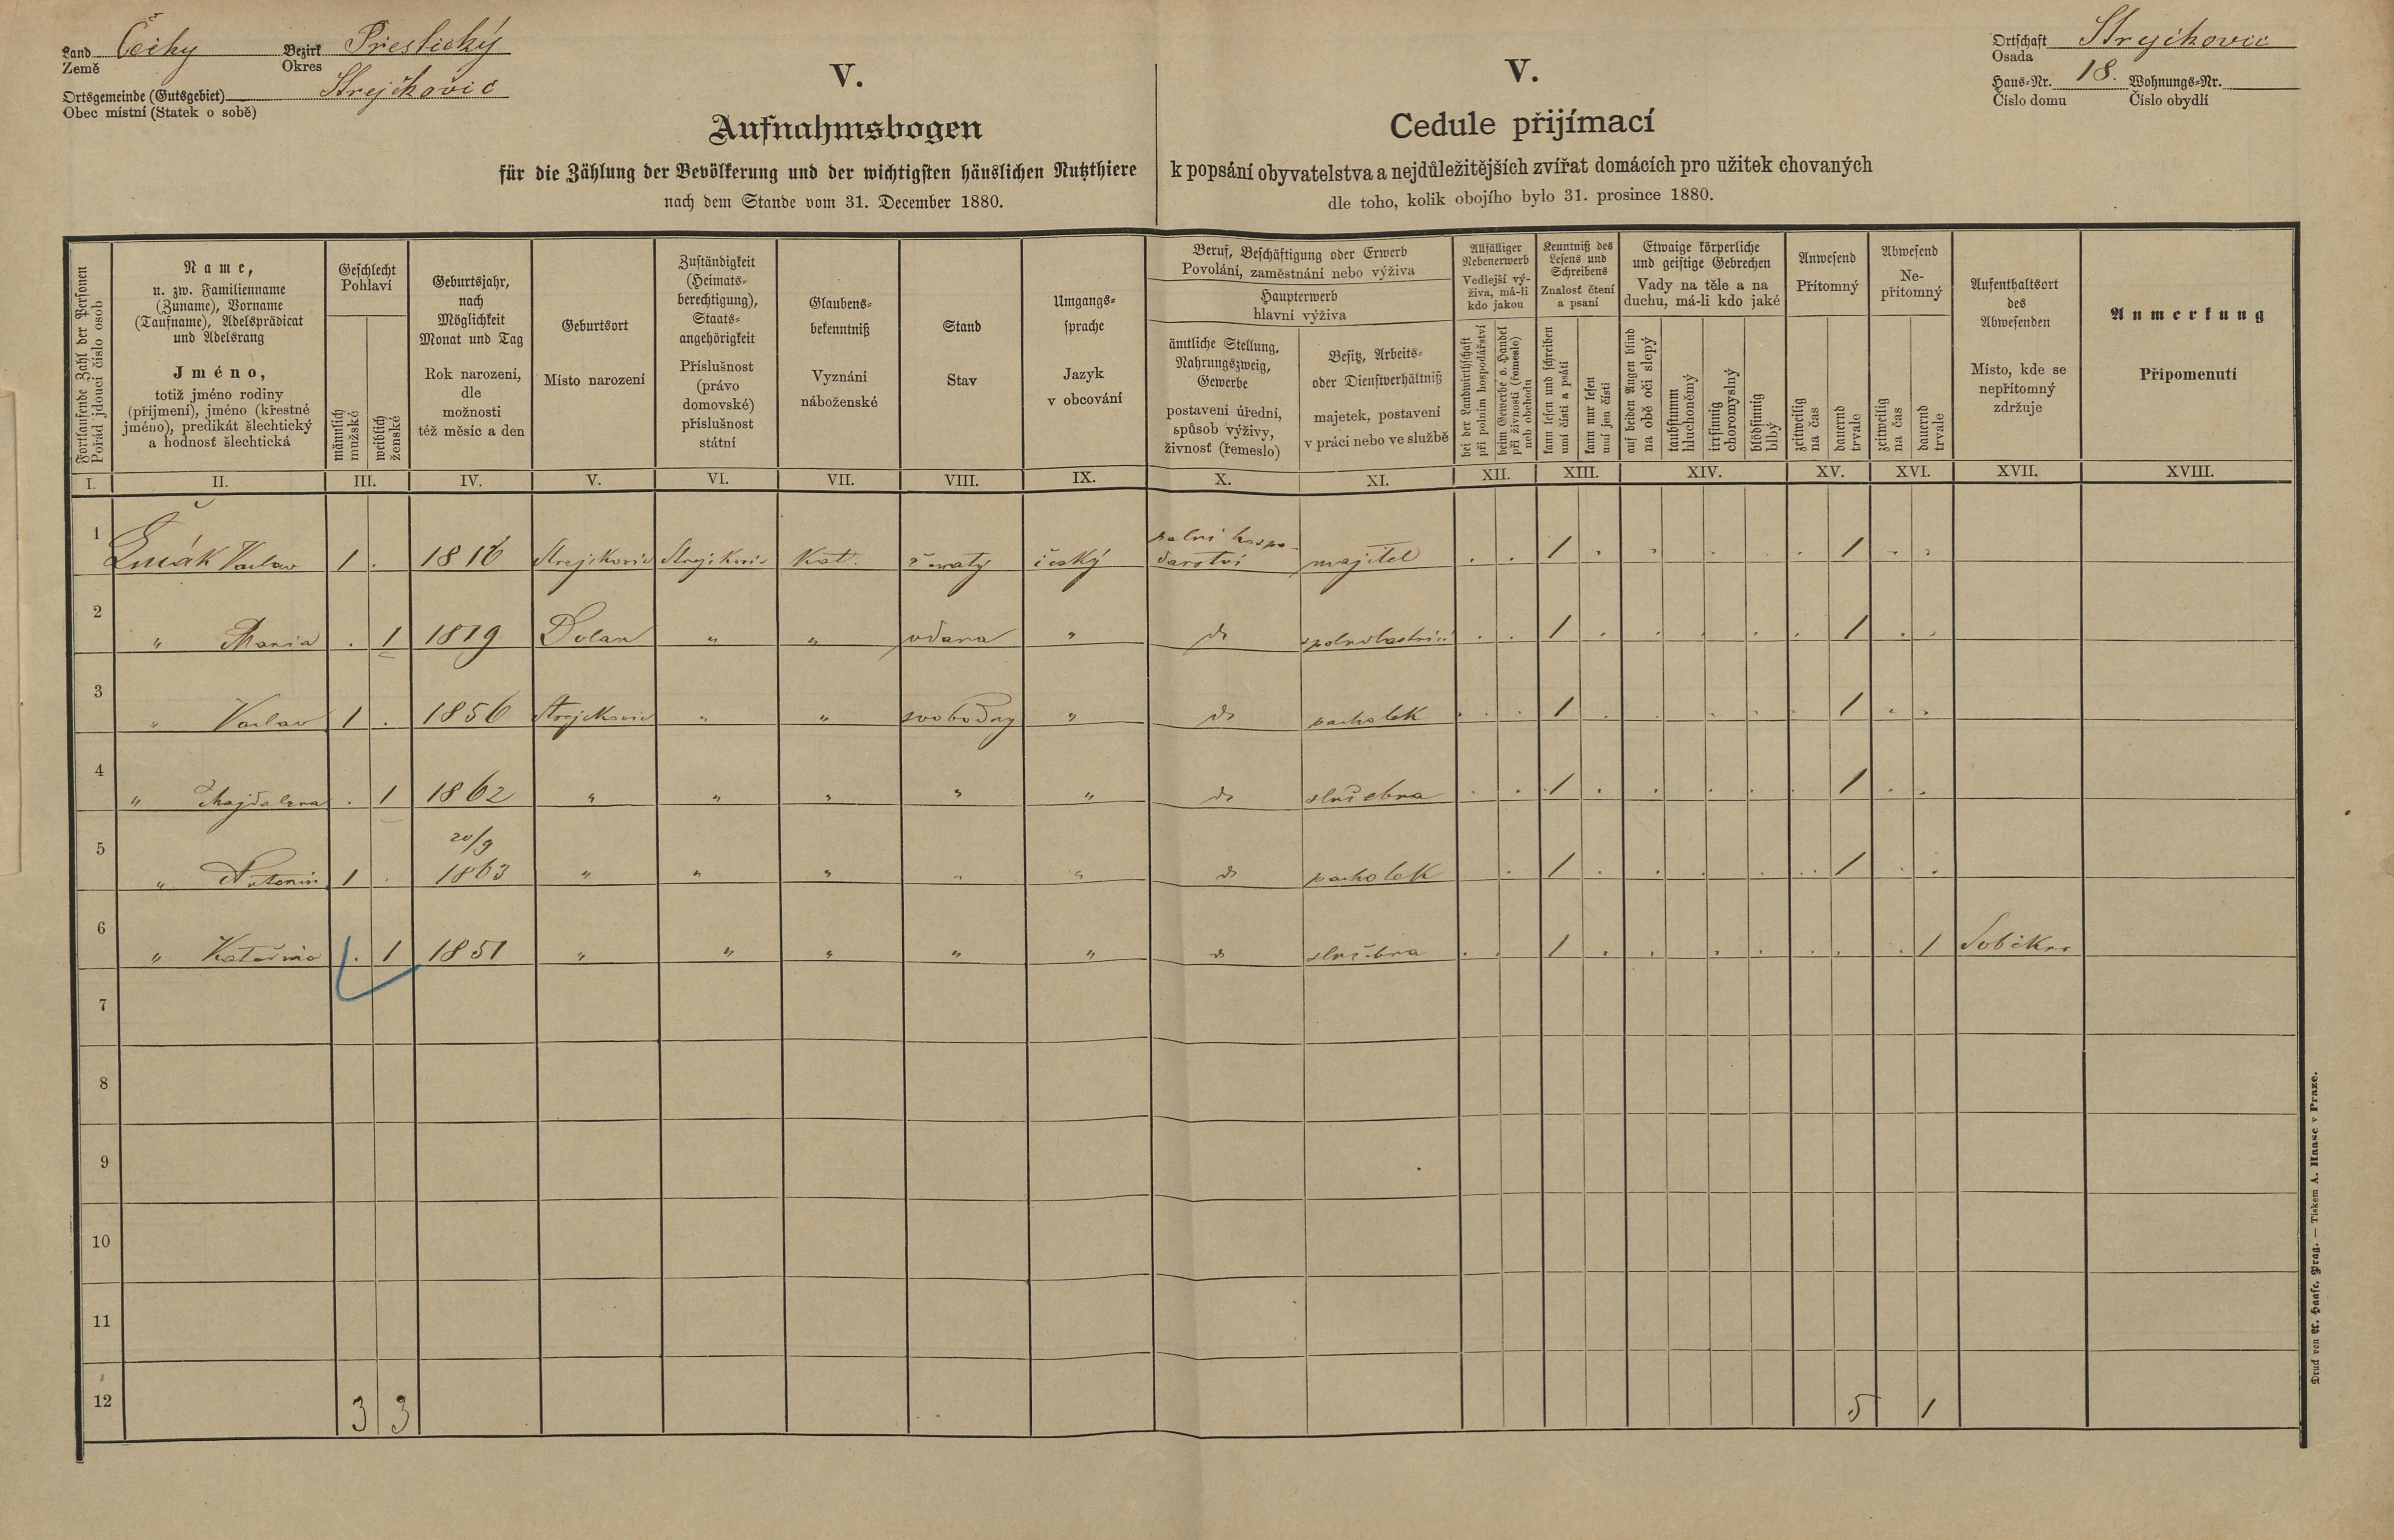 Land Čechy Bezirk Přestický
Země Okres
Ortsgemeinde (Gutsgebiet) Strejčkovic
Obec místní (Statek o sobě)
V.
Aufnahmsbogen
für die Zählung der Bevölkerung und der wichtigsten häuslichen Nutzthiere
nach dem Stande vom 31. December 1880.
V.
Cedule přijímací
k popsání obyvatelstva a nejdůležitějších zvířat domácích pro užitek chovaných
dle toho, kolik obojího bylo 31. prosince 1880.
Ortschaft Strejčkovic
Osada
Haus-Nr. 18. Wohnungs-Nr.
Číslo domu Číslo obydlí
Fortlaufende Zahl der Personen
Pořád jdoucí číslo osob
Name,
u. zw. Familienname
(Zuname), Vorname
(Taufname), Adelsprädicat
und Adelsrang
Jméno,
totiž jméno rodiny
(příjmení), jméno (křestné
jméno), predikát šlechtický
a hodnosť šlechtická
Geschlecht
Pohlaví
männlich
mužské
weiblich
ženské
Geburtsjahr,
nach
Möglichkeit
Monat und Tag
Rok narození,
dle
možnosti
též měsíc a den
Geburtsort
Místo narození
Zuständigkeit
(Heimats-
berechtigung),
Staats-
angehörigkeit
Příslušnost
(právo
domovské)
příslušnost
státní
Glaubens-
bekenntniß
Vyznání
náboženské
Stand
Stav
Umgangs-
sprache
Jazyk
v obcování
Beruf, Beschäftigung oder Erwerb
Povolání, zaměstnání nebo výživa
Haupterwerb
hlavní výživa
ämtliche Stellung,
Nahrungszweig,
Gewerbe
postavení úřední,
spůsob výživy,
živnosť (řemeslo)
Besitz, Arbeits-
oder Dienstverhältniß
majetek, postavení
v práci nebo ve službě
Allfälliger
Nebenerwerb
Vedlejší vý-
živa, má-li
kdo jakou
bei der Landwirthschaft
při polním hospodářství
beim Gewerbe o. Handel
při živnosti (řemesle)
neb obchodu
Kenntniß des
Lesens und
Schreibens
Znalosť čtení
a psaní
kann lesen und schreiben
umí čísti a psáti
kann nur lesen
umí jen čísti
Etwaige körperliche
und geistige Gebrechen
Vady na těle a na
duchu, má-li kdo jaké
auf beiden Augen blind
na obě oči slepý
taubstumm
hluchoněmý
irrsinnig
choromyslný
blödsinnig
blbý
Anwesend
Přítomný
zeitweilig
na čas
dauernd
trvale
Abwesend
Ne-
přítomný
zeitweilig
na čas
dauernd
trvale
Aufenthaltsort
des
Abwesenden
Místo, kde se
nepřítomný
zdržuje
Anmerkung
Připomenutí
I. II. III. IV. V. VI. VII. VIII. IX. X. XI. XII. XIII. XIV. XV. XVI. XVII. XVIII.
1 Vaclav 1 . 1816 Strejckovic Strejckovic Kat. ženatý český polní hospo-
darství majitel . . 1 . . . . 1 . .
2 " Maria . 1 1819 Dolan " " vdana " do spolnvlastnicí . . 1 . . . . . 1 . .
3 " Vaclav 1 . 1856 Strejckovic " " svobodny " do pacholek . . . 1 . . . . . 1 . .
4 " Majdalena . 1 1862 " " " " " do služebna . . 1 . . . . . 1 . .
5 " Antonin 1 . 20/9
1863 " " " " " do pacholek . 1 . . . . . . 1 . .
6 " Kateřina . 1 1851 " " " " " do služebna . . 1 . . . . . . . 1
7
8
9
10
11
12 3 3 5 1
Druck von A. Haase, Prag. — Tiskem A. Haase v Praze.